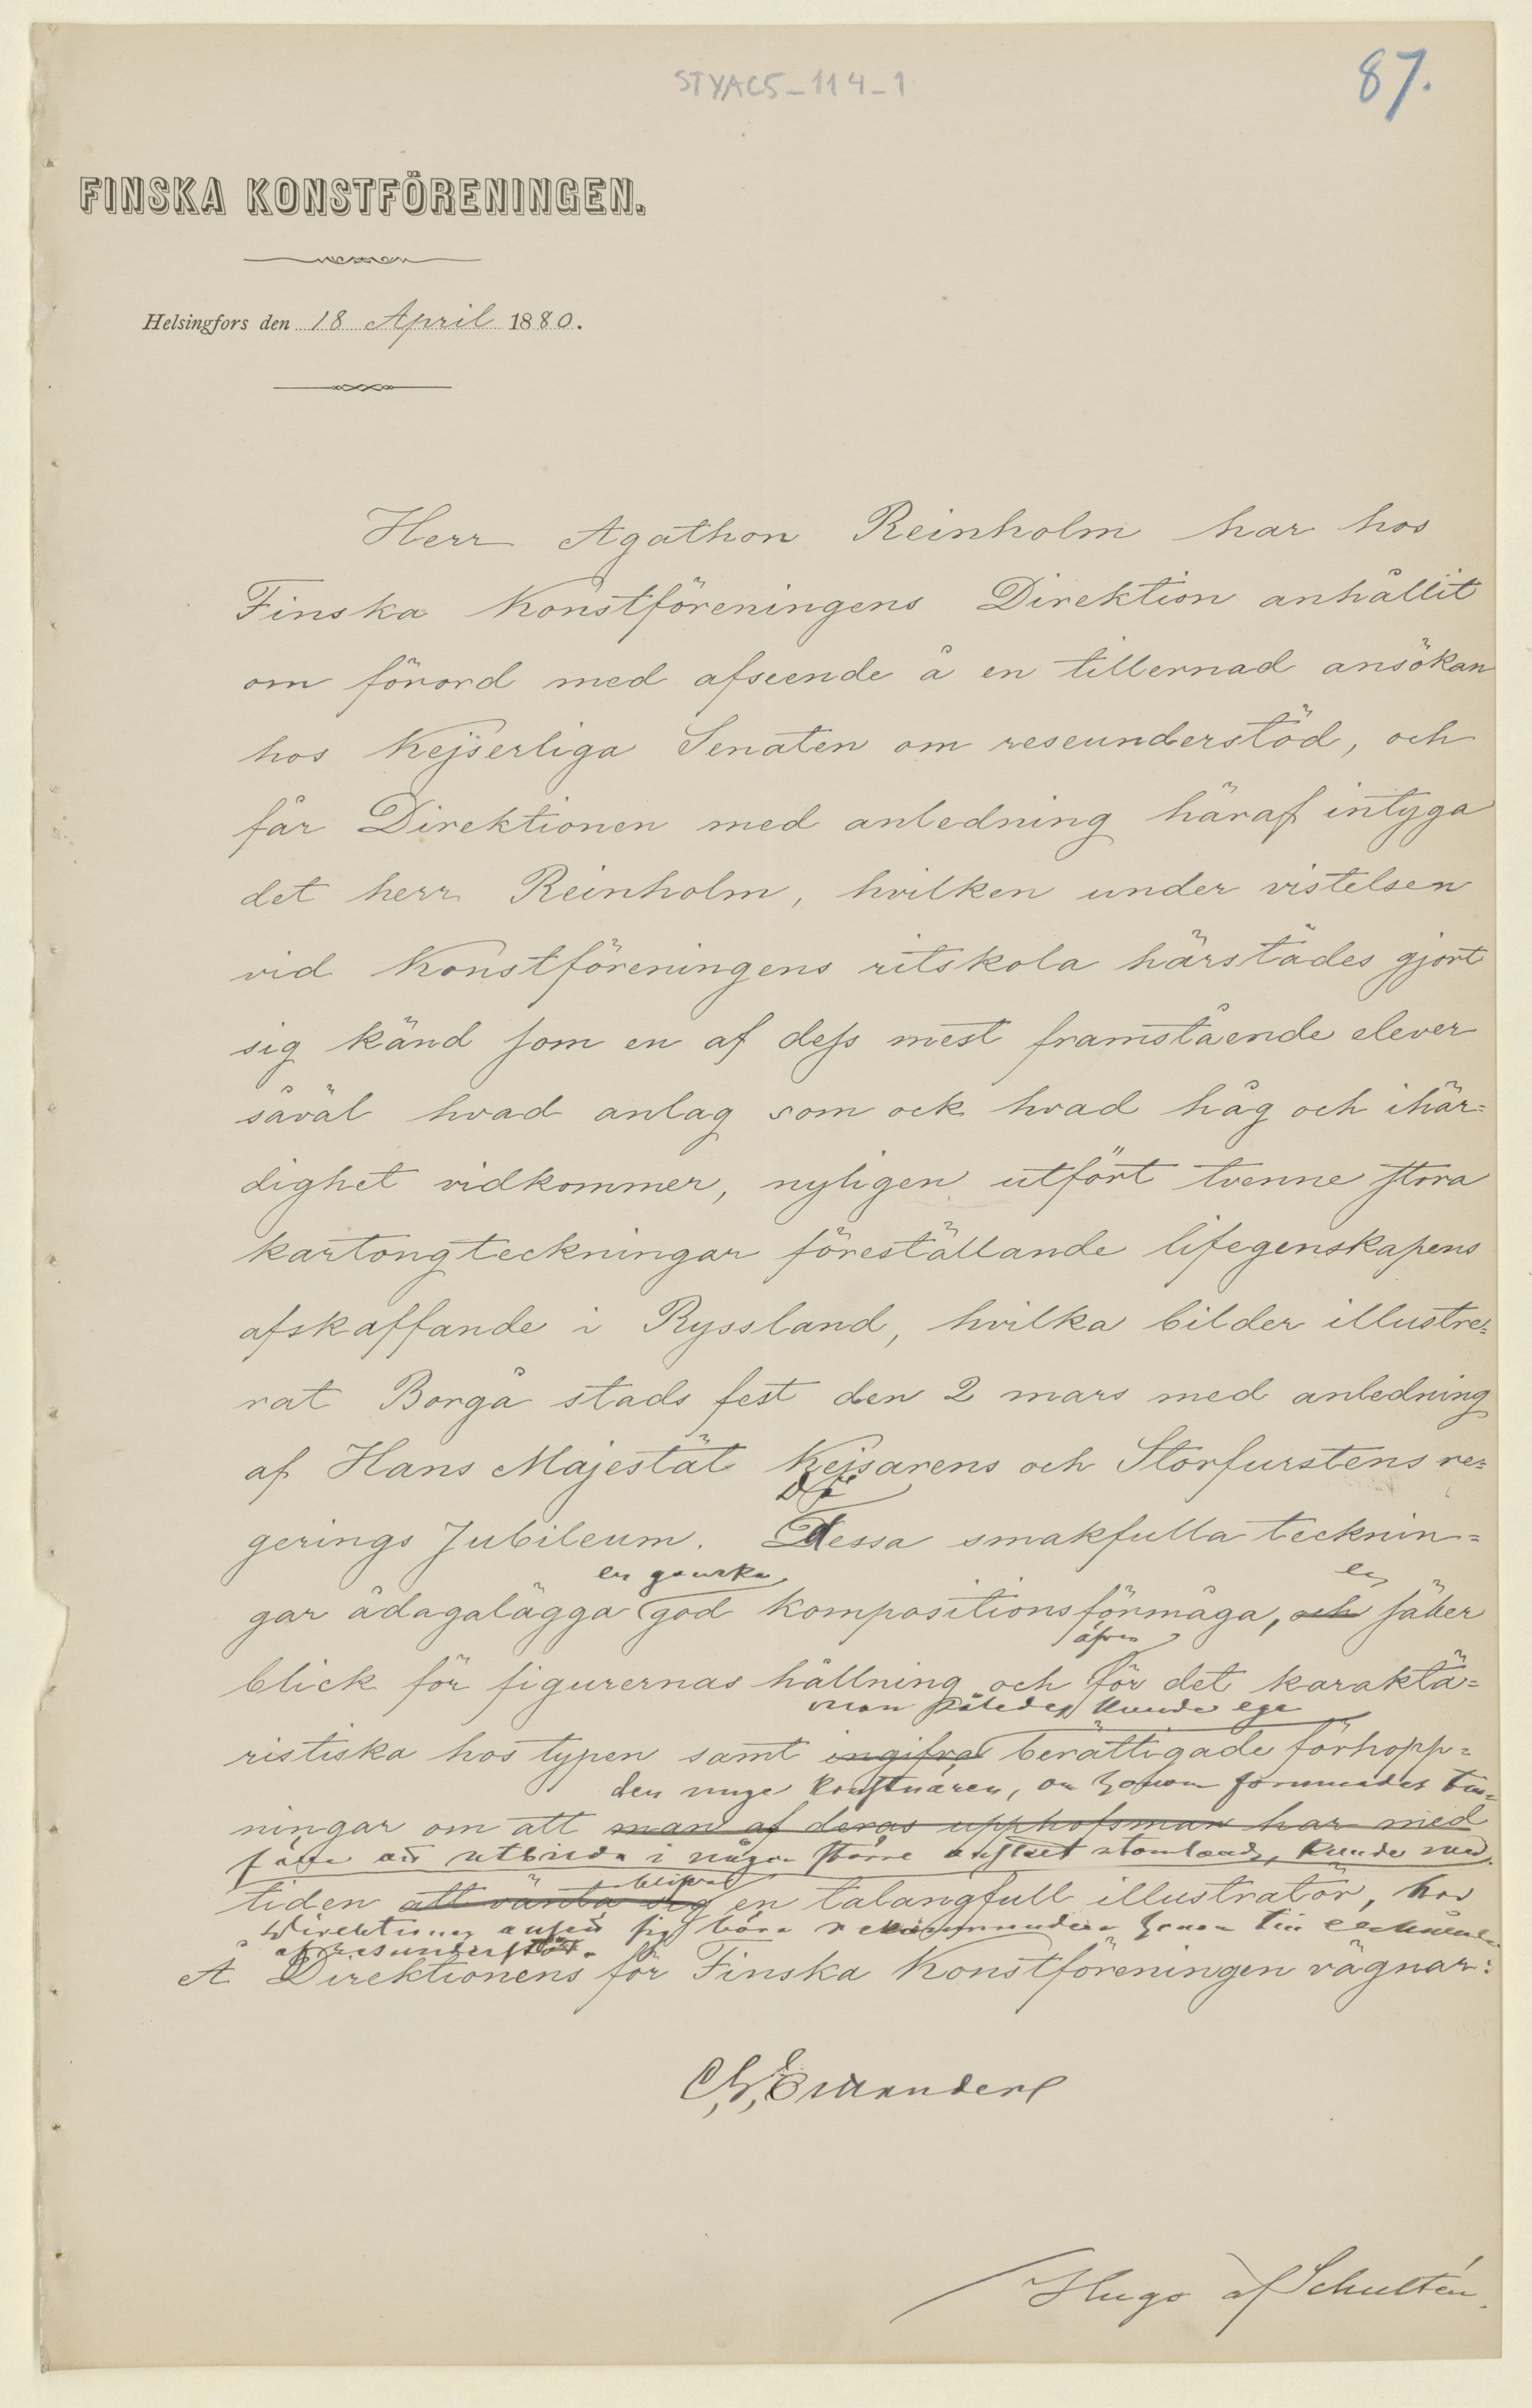 STYAC5-114-1
87.
FINSKA KONSTFÖRENINGEN.
Helsingfors den 18 April 1880.
Herr Agathon Reinholm har hos
Finska Konstföreningens Direktion anhållit
om förord med afseende å en tillernad ansökan
hos Kejserliga Senaten om reseunderstöd, och
får Direktionen med anledning häraf intyga
det herr Reinholm, hvilken under vistelsen
vid Konstföreningens ritskola härstädes gjort
sig känd som en af dess mest framstående elever
såväl hvad anlag som ock hvad håg och ihär=
dighet vidkommer, nyligen utfört tvenne stora
kartongteckningar föreställande lifegenskapens
afskaffande i Ryssland, hvilka bilder illustre=
rat Borgå stads fest den 2 mars med anledning
af Hans Majestät Kejsarens och Storfurstens re=
Då
gerings Jubileum. dessa smakfulla tecknin=
en ganska
en
gar ådagalägga god kompositionsförmåga, och säker
äfven
blick för figurernas hållning och för det karaktä=
man således kunde ega
ristiska hos typen samt ingifva berättigade förhopp=
den unge konstnären, om honom förunnades till=
ningar om att man af deras upphofsman har med
fälle att utbilda i någon större anstalt utomlands, kunde med
blifva
tiden att vänta sig en talangfull illustratör, har
Direktionen ansett sig böra rekommendera honom till
af reseunderstöd.
Å Direktionens för Finska Konstföreningen vägnar:
C. G. Estlander
Hugo af Schultén.